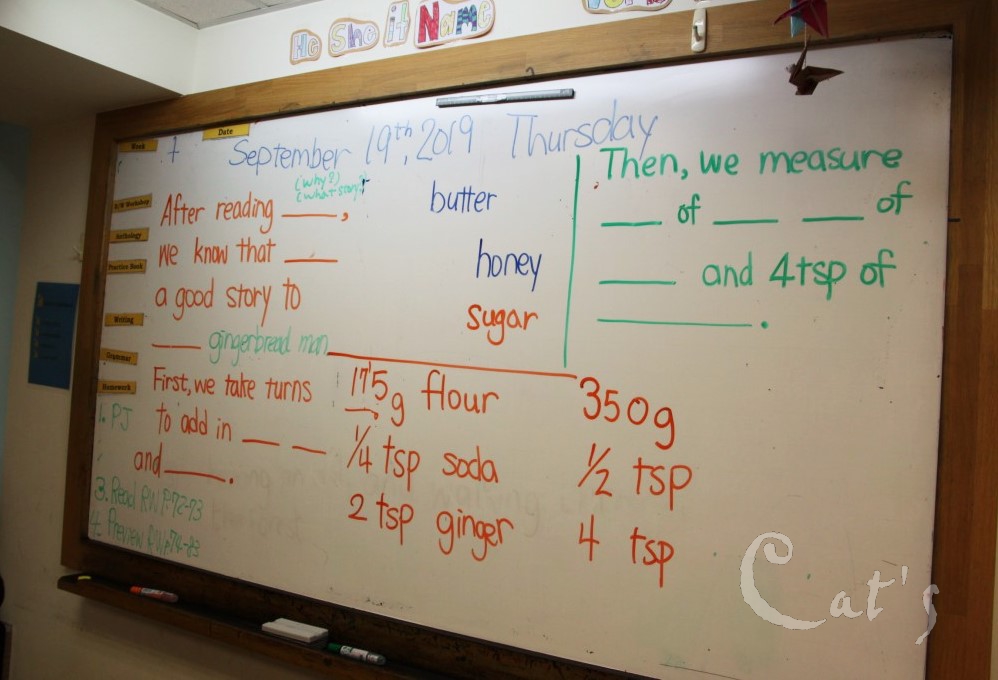 He She it Name
Week
Date
7 September 19th, 2019 Thursday
R/W Workshop
Anthology
Practice Book
Writing
Grammar
Homework
(why?)
(what story?)
After reading ____,
we know that ____
a good story to
____ gingerbread man
butter
honey
sugar
Then, we measure
____ of ____ ____ of
____ and 4 tsp of
____.
First, we take turns
to add in ____ ____
and ____.
175g flour 350g
1/4 tsp soda 1/2 tsp
2 tsp ginger 4 tsp
1. PJ
3. Read RW P.72-73
4. Preview RW p74-83
Cat's